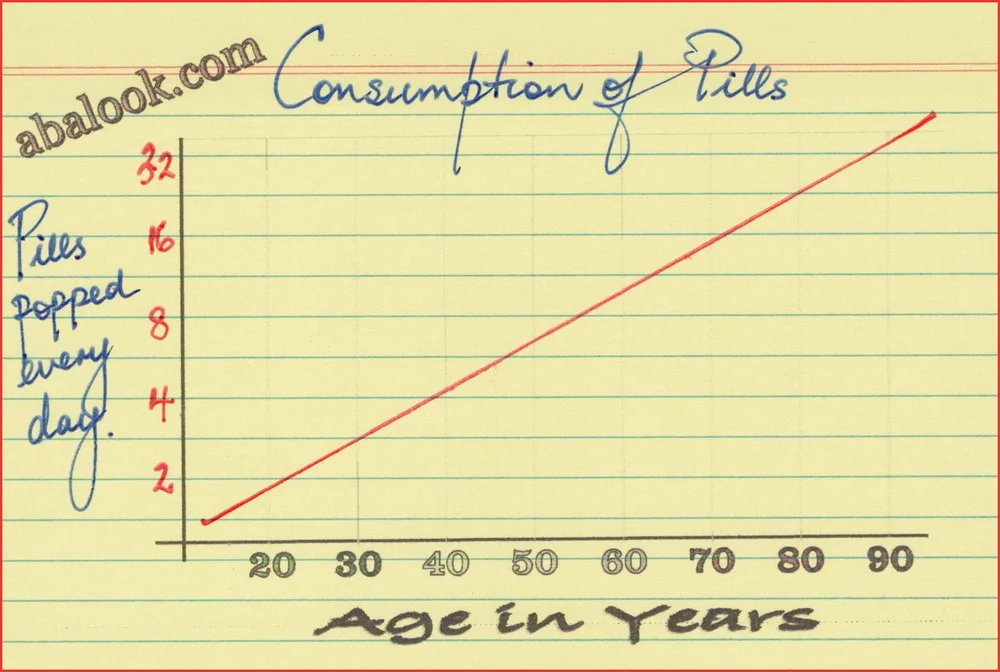 abalook.com
Consumption of Pills
Pills
popped
every
day.
32
16
8
4
2
20 30 40 50 60 70 80 90
Age in Years